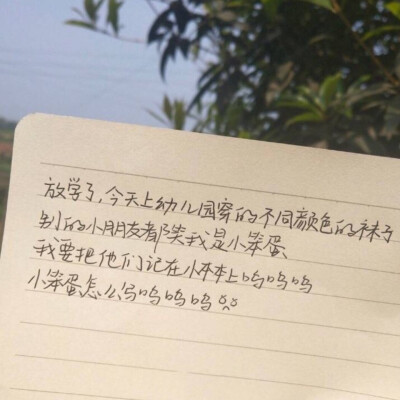 放学了,今天上幼儿园穿的不同颜色的袜子
别的小朋友都笑我是小笨蛋
我要把他们记在小本本上呜呜呜
小笨蛋怎么写呜呜呜